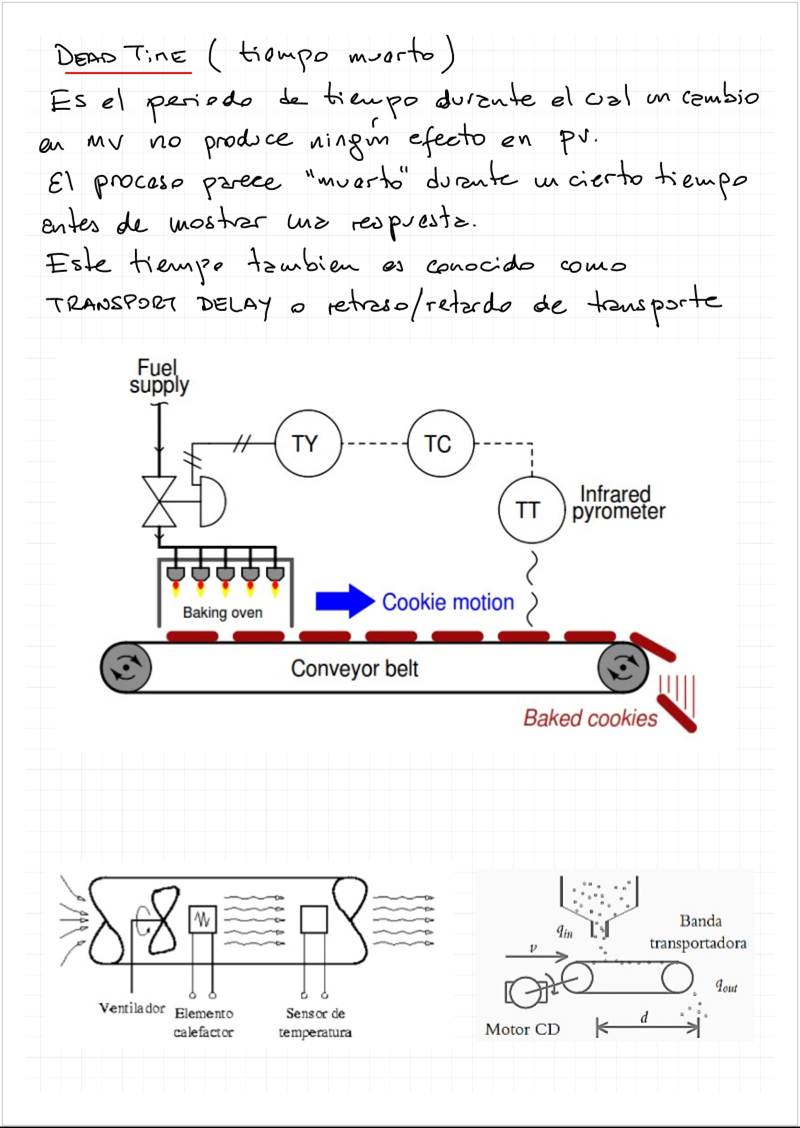 DEAD TIME ( tiempo muerto )
Es el periodo de tiempo durante el cual un cambio
en MV no produce ningún efecto en PV.
El proceso parece "muerto" durante un cierto tiempo
antes de mostrar una respuesta.
Este tiempo tambien es conocido como
TRANSPORT DELAY o retraso/retardo de transporte
Fuel
supply
TY
TC
TT
Infrared
pyrometer
Baking oven
Cookie motion
Conveyor belt
Baked cookies
Ventilador
Elemento
calefactor
Sensor de
temperatura
q_in
Banda
transportadora
v
q_out
Motor CD
d